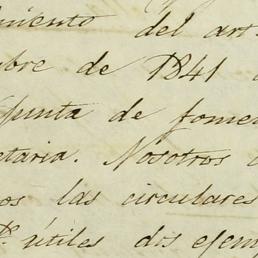 miento del art
bre de 1841
junta de fomen
etaria. Nosotros
os las circulares
útiles dis ejem